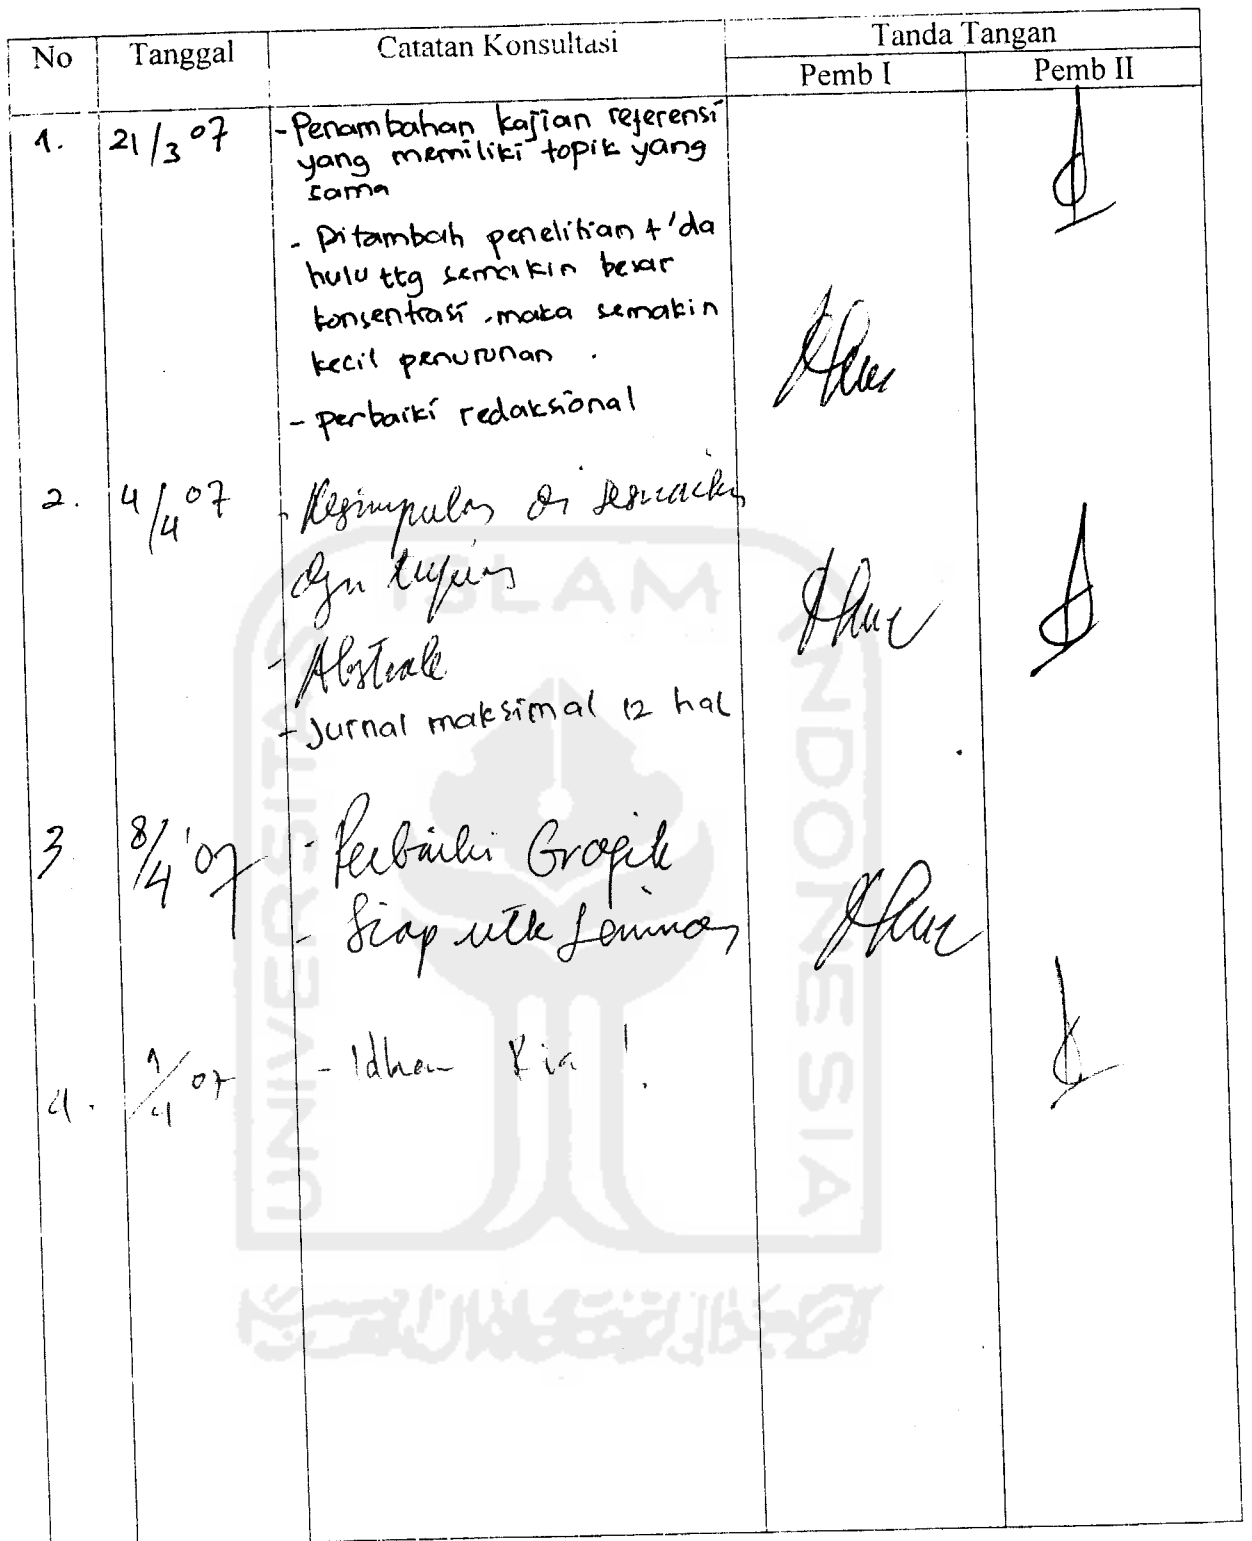 No Tanggal Catatan Konsultasi Tanda Tangan
Pemb I Pemb II
1. 21/3 07 - Penambahan kajian referensi
yang memiliki topik yang
sama
- Ditambah penelitian t'da
hulu ttg semakin besar
konsentrasi, maka semakin
kecil penurunan .
- perbaiki redaksional
2. 4/4 07 - Kesimpulan di sesuaikan
dgn tujuan
- Abstrak
- Jurnal maksimal 12 hal
3 8/4 '07 - Perbaiki Grafik
- Siap utk Seminar
4. /4 07 -
UNIVERSITAS ISLAM INDONESIA